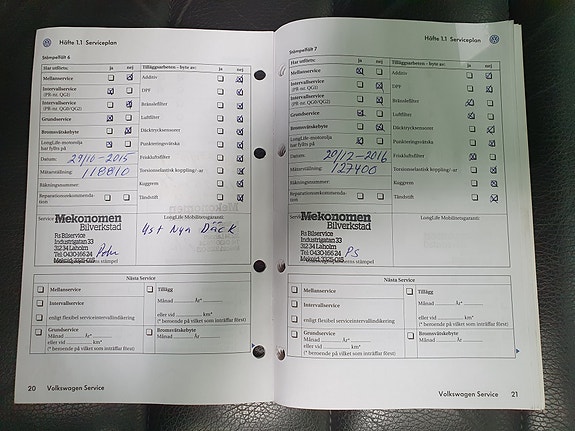 Häfte 1.1 Serviceplan
Stämpelfält 6
Har utförts: ja nej
Mellanservice
Intervallservice
(PR-nr. QG1)
Intervallservice
(PR-nr. QG0/QG2)
Grundservice
Bromsvätskebyte
LongLife-motorolja
har fyllts på
Datum: 29/10-2015
Mätarställning: 118810
Räkningsnummer:
Reparationsrekommenda-
tion
Tilläggsarbeten - byte av: ja nej
Additiv
DPF
Bränslefilter
Luftfilter
Däcktrycksensorer
Punkteringsvätska
Friskluftsfilter
Torsionselastisk koppling/-ar
Kuggrem
Tändstift
Service
Mekonomen
Bilverkstad
Rs Bilservice
Industrigatan 33
312 34 Laholm
Tel 0430-166 24
LongLife Mobilitetsgaranti:
4st Nya Däck
Nästa Service
Mellanservice
Intervallservice
enligt flexibel serviceintervallindikering
Grundservice
Månad År*
eller vid km*
(* beroende på vilket som inträffar först)
Tillägg
Månad År*
eller vid km*
(* beroende på vilket som inträffar först)
Bromsvätskebyte
Månad År*
20 Volkswagen Service
Häfte 1.1 Serviceplan
Stämpelfält 7
Har utförts: ja nej
Mellanservice
Intervallservice
(PR-nr. QG1)
Intervallservice
(PR-nr. QG0/QG2)
Grundservice
Bromsvätskebyte
LongLife-motorolja
har fyllts på
Datum: 20/12-2016
Mätarställning: 127400
Räkningsnummer:
Reparationsrekommenda-
tion
Tilläggsarbeten - byte av: ja nej
Additiv
DPF
Bränslefilter
Luftfilter
Däcktrycksensorer
Punkteringsvätska
Friskluftsfilter
Torsionselastisk koppling/-ar
Kuggrem
Tändstift
Mekonomen
Bilverkstad
Rs Bilservice
Industrigatan 33
312 34 Laholm
Tel 0430-166 24
PS
LongLife Mobilitetsgaranti:
Nästa Service
Mellanservice
Intervallservice
enligt flexibel serviceintervallindikering
Grundservice
Månad År*
eller vid km*
(* beroende på vilket som inträffar först)
Tillägg
Månad År*
eller vid km*
(* beroende på vilket som inträffar först)
Bromsvätskebyte
Månad År*
Volkswagen Service 21